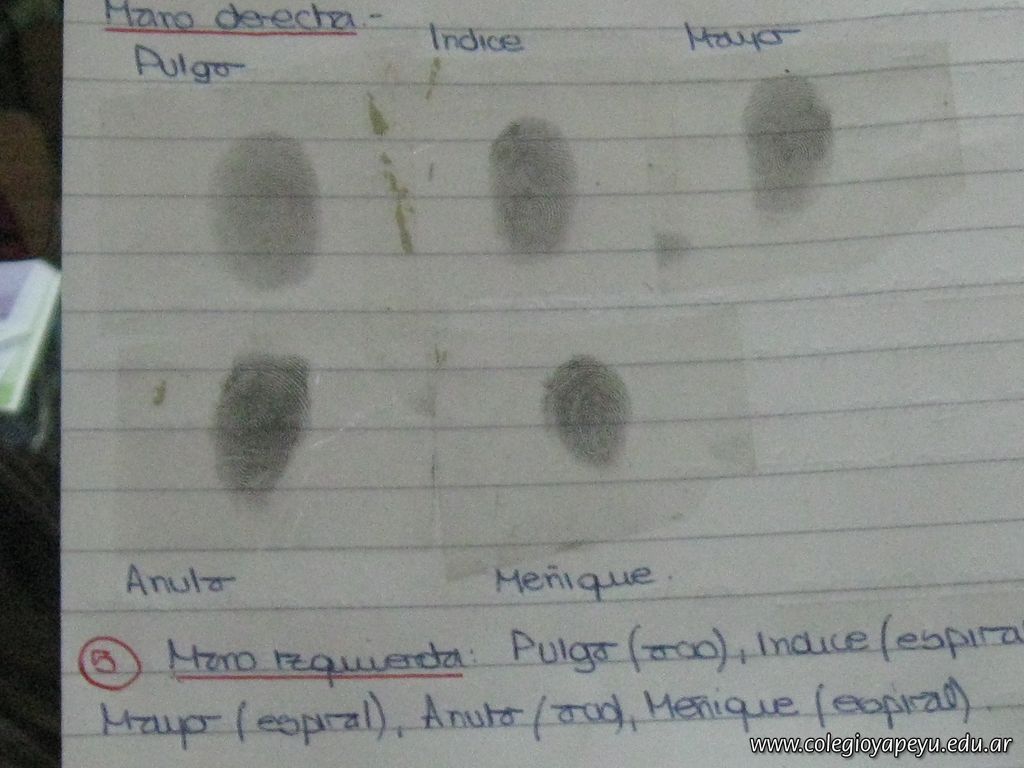 Mano derecha.-
Pulgar Indice Mayor
Anular Meñique.
5 Mano Izquierda: Pulgar (arco), Indice (espiral
Mayor (espiral), Anular (arco), Meñique (espiral).
www.colegioyapeyu.edu.ar